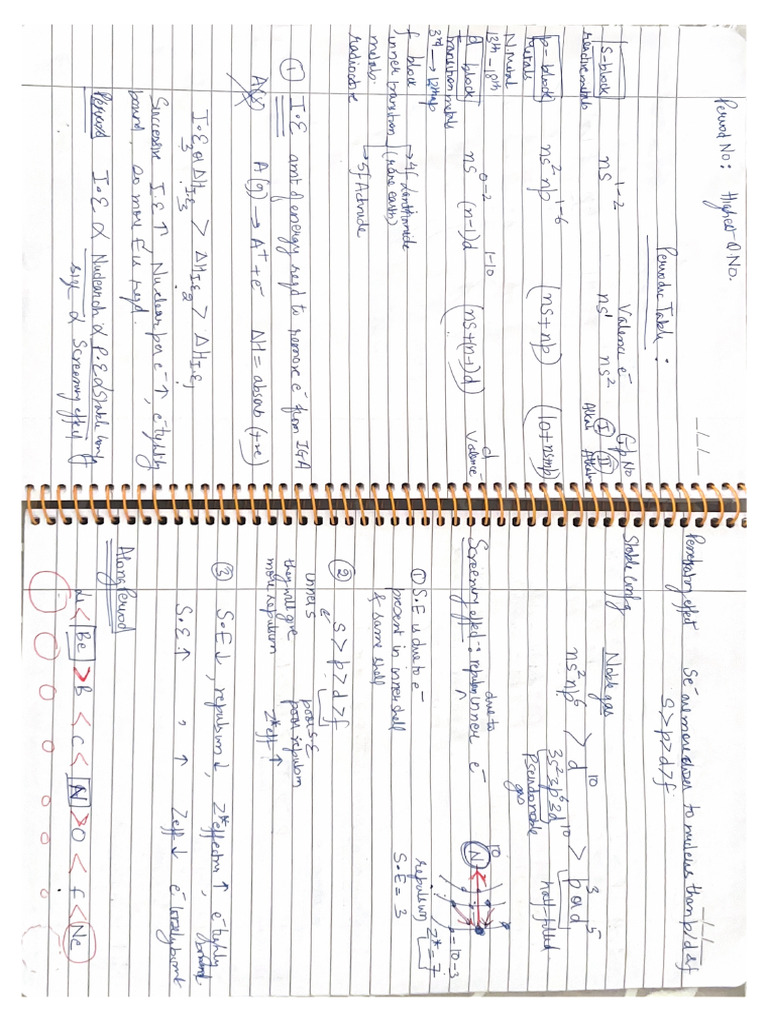 Period No: Highest Q No.
Periodic Table:
Valence e⁻ Gp No
S-block ns¹⁻² ns¹ ns² (I) (II)
reactive metals Alkali Alkaline
p-block ns²np¹⁻⁶ (ns+np) (10+ns+np)
Metals
N.Metal
13th-18th
d block ns⁰⁻² (n-1)d¹⁻¹⁰ (ns+(n-1)d) d
transition metals Valence
3rd → 12th gp
f block → 4f Lanthanide
inner transition (rare earth)
metals → 5f Actinide
radioactive
① I.E amt of energy reqd to remove e⁻ from IGA
A(g) → A⁺ + e⁻ ΔH = absorb (+ve)
I.E₃ or ΔH I.E₃ > ΔH I.E₂ > ΔH I.E₁
Successive I.E ↑ Nuclear per e⁻ ↑, e⁻ tightly
bound, so more E is reqd.
Period I.E ∝ Nuclear ch ∝ P.E ∝ Stable config
size ∝ Screening effect
Penetrating effect Se⁻ are more closer to nucleus than p/d &f
S > p > d > f
Stable config Noble gas
ns²np⁶ > d¹⁰ > p³ or d⁵
3s²3p⁶3d¹⁰ half filled
Pseudonoble
gas
Screening effect → repulsion due to inner e⁻
10
N
= 10-3
repulsion Z* = 7
S.E = 3
① S.E is due to e⁻
present in inner shell
& same shell
② S > p > d > f
inner s poor S.E
they will give poor repulsion
more repulsion Z*eff ↑
③ S.E ↓, repulsion ↓ Z*effective ↑, e⁻ tightly bound
S.E. ↑ , ↑ Zeff ↓ e⁻ loosely bound
Along Period
Li < Be > B < C < N > O < f < Ne